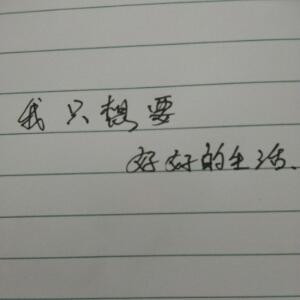 我只想要
好好的生活.